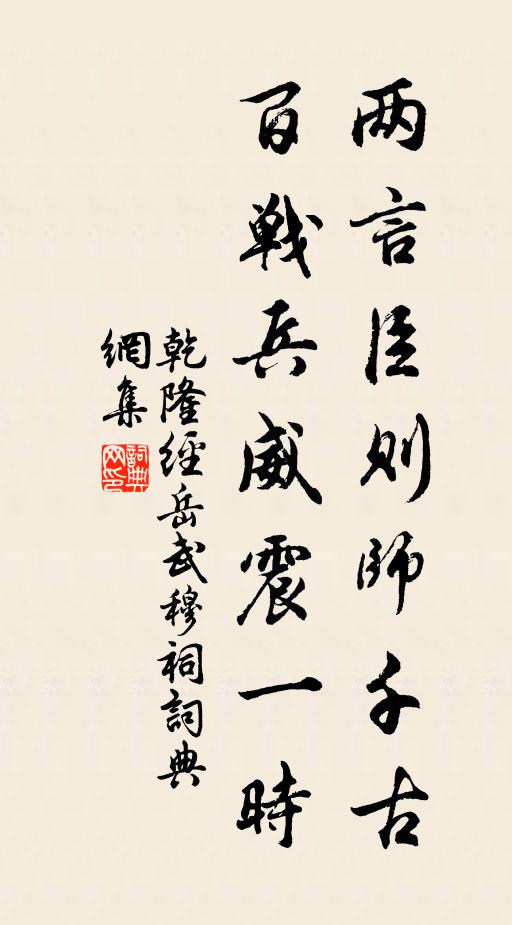 两言臣则師千古
百戰兵威震一時
乾隆經岳武穆祠詞典
網集
詞典
网印